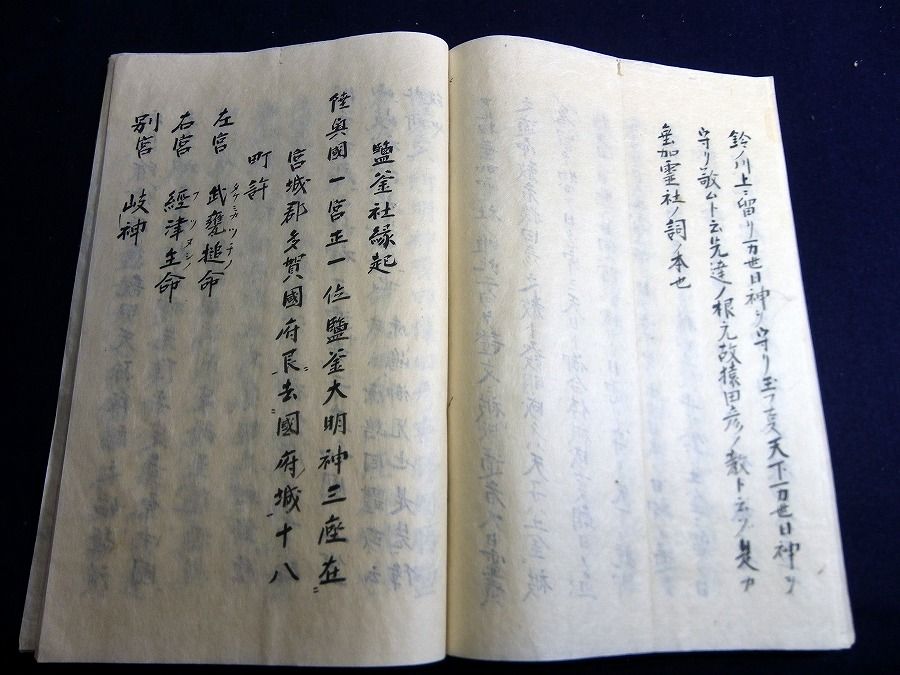 鈴ノ川上ニ留リ万世日神ヲ守リ玉フ叓天下万世日神ヲ
守リ敬ムト云先達ノ根元故猿田彦ノ教ト云ヿ是カ
垂加霊社ノ詞ノ本也
鹽釜社縁起
陸奥國一宮正一位鹽釜大明神三座在
宮城郡多賀國府艮去國府城十八
町許
左宮 武甕槌命
右宮 經津主命
別宮 岐神